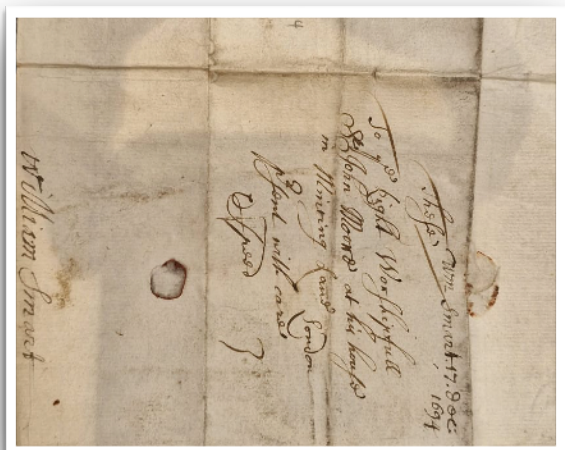 Wm Smart 17. Dec:
1694
These
To ye Right Worshipfull
Sr John Moore at his house
in Mincing Lane London
psent with care
William Smart